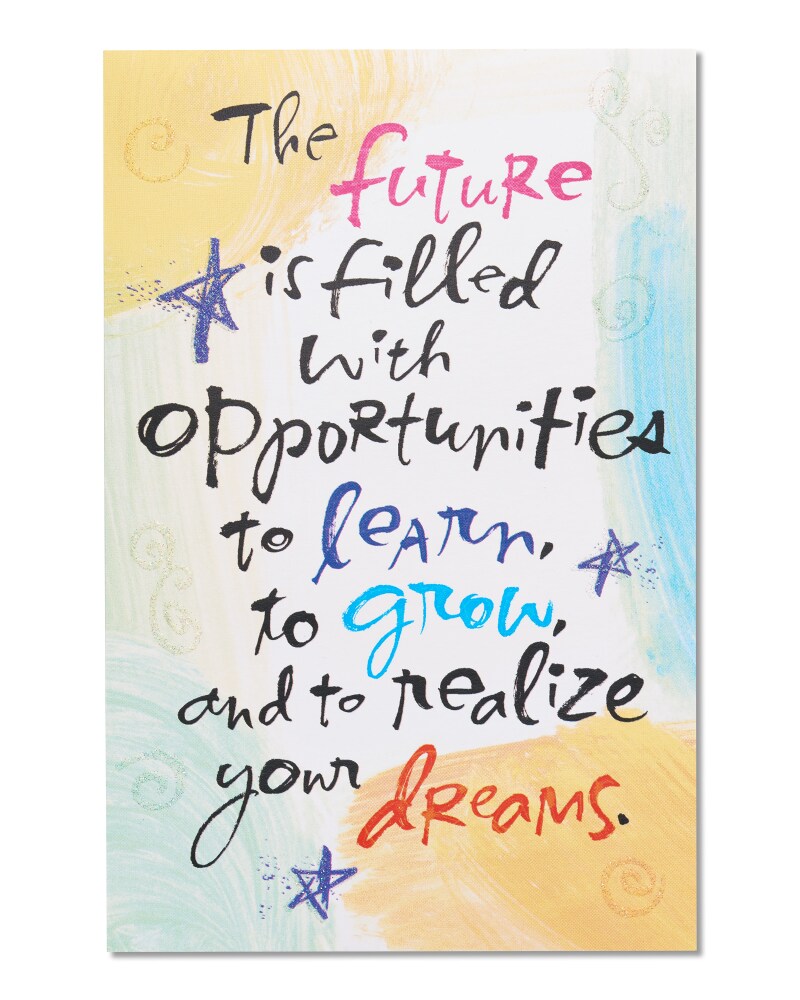 The future
is filled
with
opportunities
to learn,
to grow,
and to realize
your dreams.